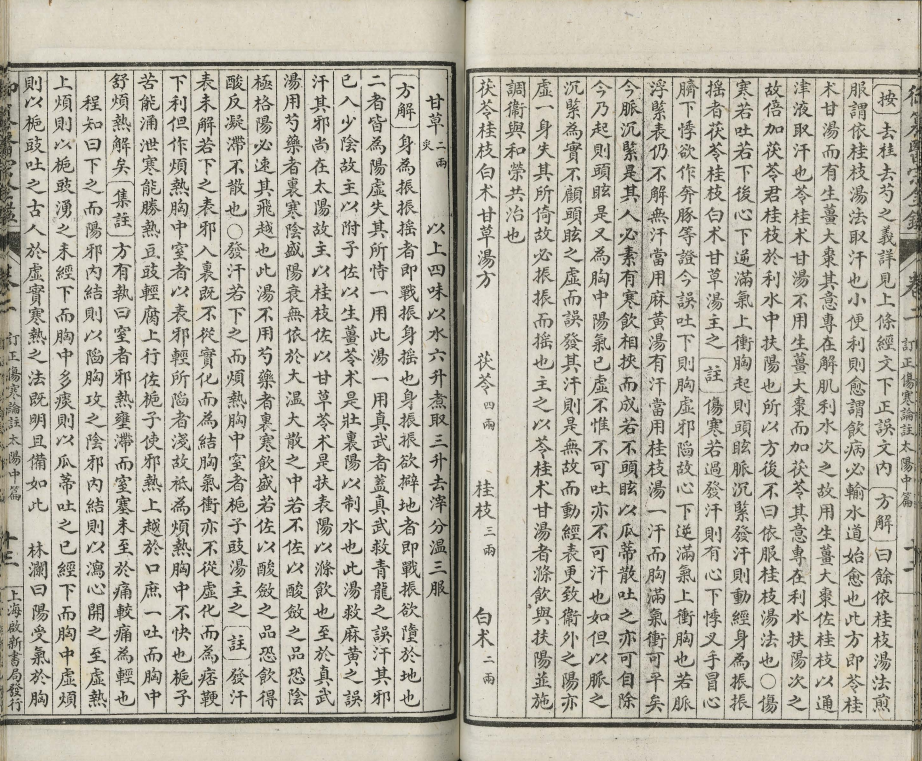 按 去桂去芍之義詳見上條經文下正誤文内 方解 曰餘依桂枝湯法煎
服謂依桂枝湯法取汗也小便利則愈謂飲病必輸水道始愈也此方即苓桂
术甘湯而有生薑大棗其意專在解肌利水次之故用生薑大棗佐桂枝以通
津液取汗也苓桂术甘湯不用生薑大棗而加茯苓其意專在利水扶陽次之
故倍加茯苓君桂枝於利水中扶陽也所以方後不曰依服桂枝湯法也○傷
寒若吐若下後心下逆滿氣上衝胸起則頭眩脈沉緊發汗則動經身為振振
搖者茯苓桂枝白术甘草湯主之 註 傷寒若過發汗則有心下悸叉手冒心
臍下悸欲作奔豚等證今誤吐下則胸虛邪陷故心下逆滿氣上衝胸也若脈
浮緊表仍不解無汗當用麻黃湯有汗當用桂枝湯一汗而胸滿氣衝可平矣
今脈沉緊是其人必素有寒飲相挾而成若不頭眩以瓜蒂散吐之亦可自除
今乃起則頭眩是又為胸中陽氣已虛不惟不可吐亦不可汗也如但以脈之
沉緊為實不顧頭眩之虛而誤發其汗則是無故而動經表更致衛外之陽亦
虛一身失其所倚故必振振而搖也主之以苓桂术甘湯者滌飲與扶陽並施
調衛與和榮共治也
茯苓桂枝白术甘草湯方 茯苓四兩 桂枝三兩 白术二兩
訂正傷寒論註太陽中篇 十二
甘草二兩炙 以上四味以水六升煮取三升去滓分溫三服
方解 身為振振搖者即戰振身搖也身振振欲擗地者即戰振欲墮於地也
二者皆為陽虛失其所恃一用此湯一用真武者蓋真武救青龍之誤汗其邪
已入少陰故主以附子佐以生薑苓术是壯裏陽以制水也此湯救麻黃之誤
汗其邪尚在太陽故主以桂枝佐以甘草苓术是扶表陽以滌飲也至於真武
湯用芍藥者裏寒陰盛陽衰無依於大溫大散之中若不佐以酸斂之品恐陰
極格陽必速其飛越也此湯不用芍藥者裏寒飲盛若佐以酸斂之品恐飲得
酸反凝滯不散也○發汗若下之而煩熱胸中窒者梔子豉湯主之 註 發汗
表未解若下之表邪入裏既不從實化而為結胸氣衝亦不從虛化而為痞鞕
下利但作煩熱胸中窒者以表邪輕所陷者淺故祇為煩熱胸中不快也梔子
苦能涌泄寒能勝熱豆豉輕腐上行佐梔子使邪熱上越於口庶一吐而胸中
舒煩熱解矣 集註 方有執曰窒者邪熱壅滯而窒塞未至於痛較痛為輕也
程知曰下之而陽邪内結則以陷胸攻之陰邪内結則以瀉心開之至虛熱
上煩則以梔豉湧之未經下而胸中多痰則以瓜蒂吐之已經下而胸中虛煩
則以梔豉吐之古人於虛實寒熱之法既明且備如此 林瀾曰陽受氣於胸
上海啟新書局發行